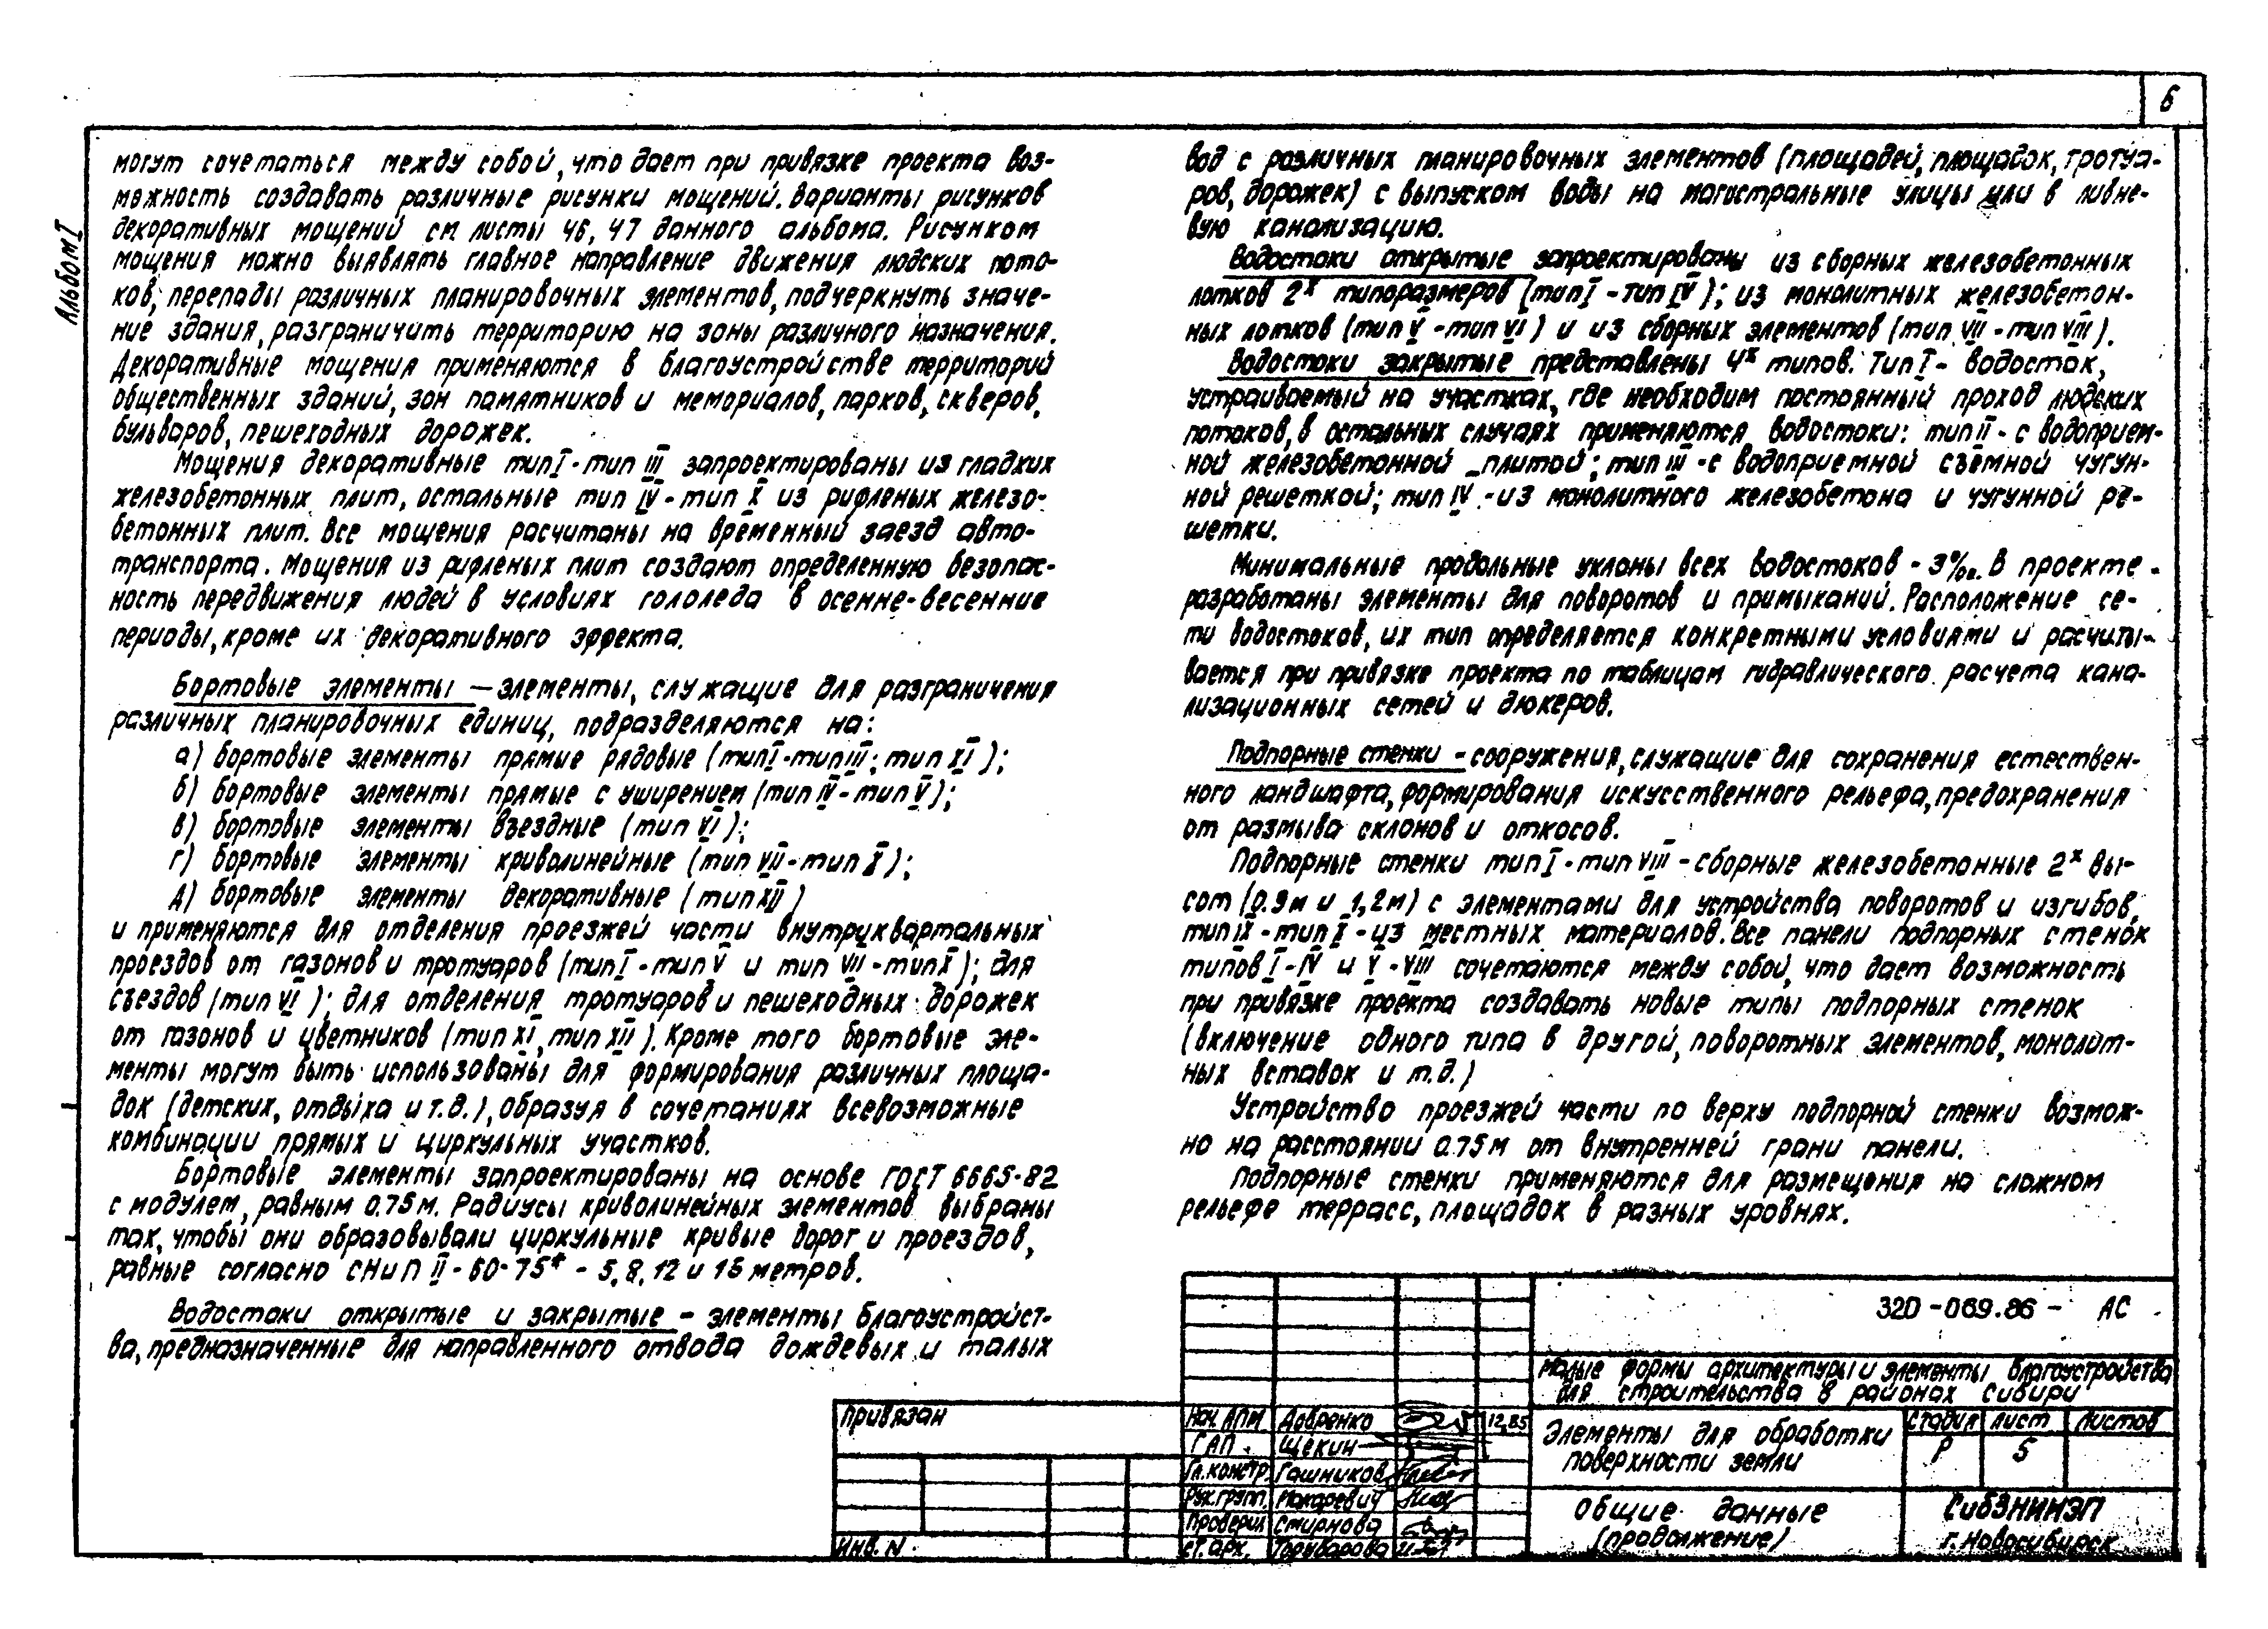 6
Альбом I
могут сочетаться между собой, что дает при привязке проекта воз-
можность создавать различные рисунки мощений. Варианты рисунков
декоративных мощений см. листы 46, 47 данного альбома. Рисунком
мощения можно выявлять главное направление движения людских пото-
ков, перепады различных планировочных элементов, подчеркнуть значе-
ние здания, разграничить территорию на зоны различного назначения.
Декоративные мощения применяются в благоустройстве территорий
общественных зданий, зон памятников и мемориалов, парков, скверов,
бульваров, пешеходных дорожек.
Мощения декоративные тип I - тип III запроектированы из гладких
железобетонных плит, остальные тип IV - тип X из рифленых железо-
бетонных плит. Все мощения расчитаны на временный заезд авто-
транспорта. Мощения из рифленых плит создают определенную безопас-
ность передвижения людей в условиях гололеда в осенне-весенние
периоды, кроме их декоративного эффекта.
Бортовые элементы — элементы, служащие для разграничения
различных планировочных единиц, подразделяются на:
а) бортовые элементы прямые рядовые (тип I - тип III; тип XI);
б) бортовые элементы прямые с уширением (тип IV - тип V);
в) бортовые элементы въездные (тип VI);
г) бортовые элементы криволинейные (тип VII - тип X);
д) бортовые элементы декоративные (тип XII)
и применяются для отделения проезжей части внутриквартальных
проездов от газонов и тротуаров (тип I - тип V и тип VII - тип X); для
съездов (тип VI); для отделения тротуаров и пешеходных дорожек
от газонов и цветников (тип XI, тип XII). Кроме того бортовые эле-
менты могут быть использованы для формирования различных площа-
док (детских, отдыха и т.д.), образуя в сочетаниях всевозможные
комбинации прямых и циркульных участков.
Бортовые элементы запроектированы на основе ГОСТ 6665-82
с модулем, равным 0.75 м. Радиусы криволинейных элементов выбраны
так, чтобы они образовывали циркульные кривые дорог и проездов,
равные согласно СНиП II-60-75* - 5, 8, 12 и 15 метров.
Водостоки открытые и закрытые - элементы благоустройст-
ва, предназначенные для направленного отвода дождевых и талых
вод с различных планировочных элементов (площадей, площадок, тротуа-
ров, дорожек) с выпуском воды на магистральные улицы или в ливне-
вую канализацию.
Водостоки открытые запроектированы из сборных железобетонных
лотков 2х типоразмеров (тип I - тип IV); из монолитных железобетон-
ных лотков (тип V - тип VI) и из сборных элементов (тип VII - тип VIII).
Водостоки закрытые представлены 4х типов. Тип I - водосток,
устраиваемый на участках, где необходим постоянный проход людских
потоков, в остальных случаях применяются водостоки: тип II - с водоприем-
ной железобетонной плитой; тип III - с водоприемной съемной чугун-
ной решеткой; тип IV - из монолитного железобетона и чугунной ре-
шетки.
Минимальные продольные уклоны всех водостоков - 3‰. В проекте
разработаны элементы для поворотов и примыканий. Расположение се-
ти водостоков, их тип определяется конкретными условиями и расчиты-
вается при привязке проекта по таблицам гидравлического расчета кана-
лизационных сетей и дюкеров.
Подпорные стенки - сооружения, служащие для сохранения естествен-
ного ландшафта, формирования искусственного рельефа, предохранения
от размыва склонов и откосов.
Подпорные стенки тип I - тип VIII - сборные железобетонные 2х вы-
сот (0.9м и 1,2м) с элементами для устройства поворотов и изгибов,
тип IX - тип X - из местных материалов. Все панели подпорных стенок
типов I - IV и V - VIII сочетаются между собой, что дает возможность
при привязке проекта создавать новые типы подпорных стенок
(включение одного типа в другой, поворотных элементов, монолит-
ных вставок и т.д.)
Устройство проезжей части по верху подпорной стенки возмож-
но на расстоянии 0.75 м от внутренней грани панели.
Подпорные стенки применяются для размещения на сложном
рельефе террасс, площадок в разных уровнях.
320-069.86 - АС
Малые формы архитектуры и элементы благоустройства
для строительства в районах Сибири
Привязан
Инв. N
Нач. АПМ Довренко 12.85
ГАП Щекин
Гл. констр. Гашников
Рук. групп. Макаревич
Проверил Смирнова
ст. арх.
Элементы для обработки
поверхности земли
Стадия Лист Листов
Р 5
Общие данные
(продолжение)
СибЗНИИЭП
г. Новосибирск